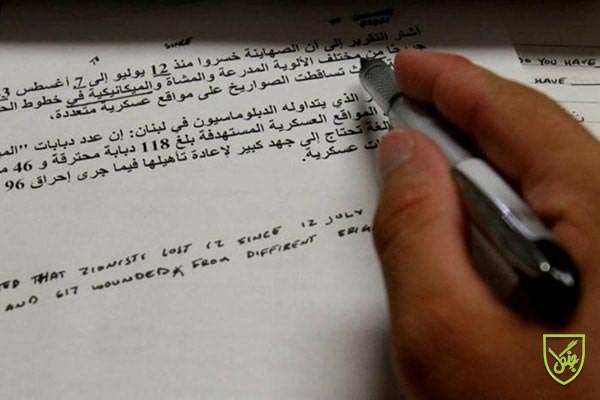 SINCE
TO
أشار التقرير إلى أن الصهاينة خسروا منذ 12 يوليو إلى 7 أغسطس
من مختلف الألوية المدرعة والمشاة والميكانيكية في خطوط
تساقطت الصواريخ على مواقع عسكرية متعددة،
الذي يتداوله الدبلوماسيون في لبنان: إن عدد دبابات
المواقع العسكرية المستهدفة بلغ 118 دبابة محترقة و 46
تحتاج إلى جهد كبير لإعادة تأهيلها فيما جرى إحراق 96
عسكرية.
THAT ZIONISTS LOST SINCE 12 JULY
AND 617 WOUNDED FROM DIFFIRENT
DO YOU HAVE
HAVE